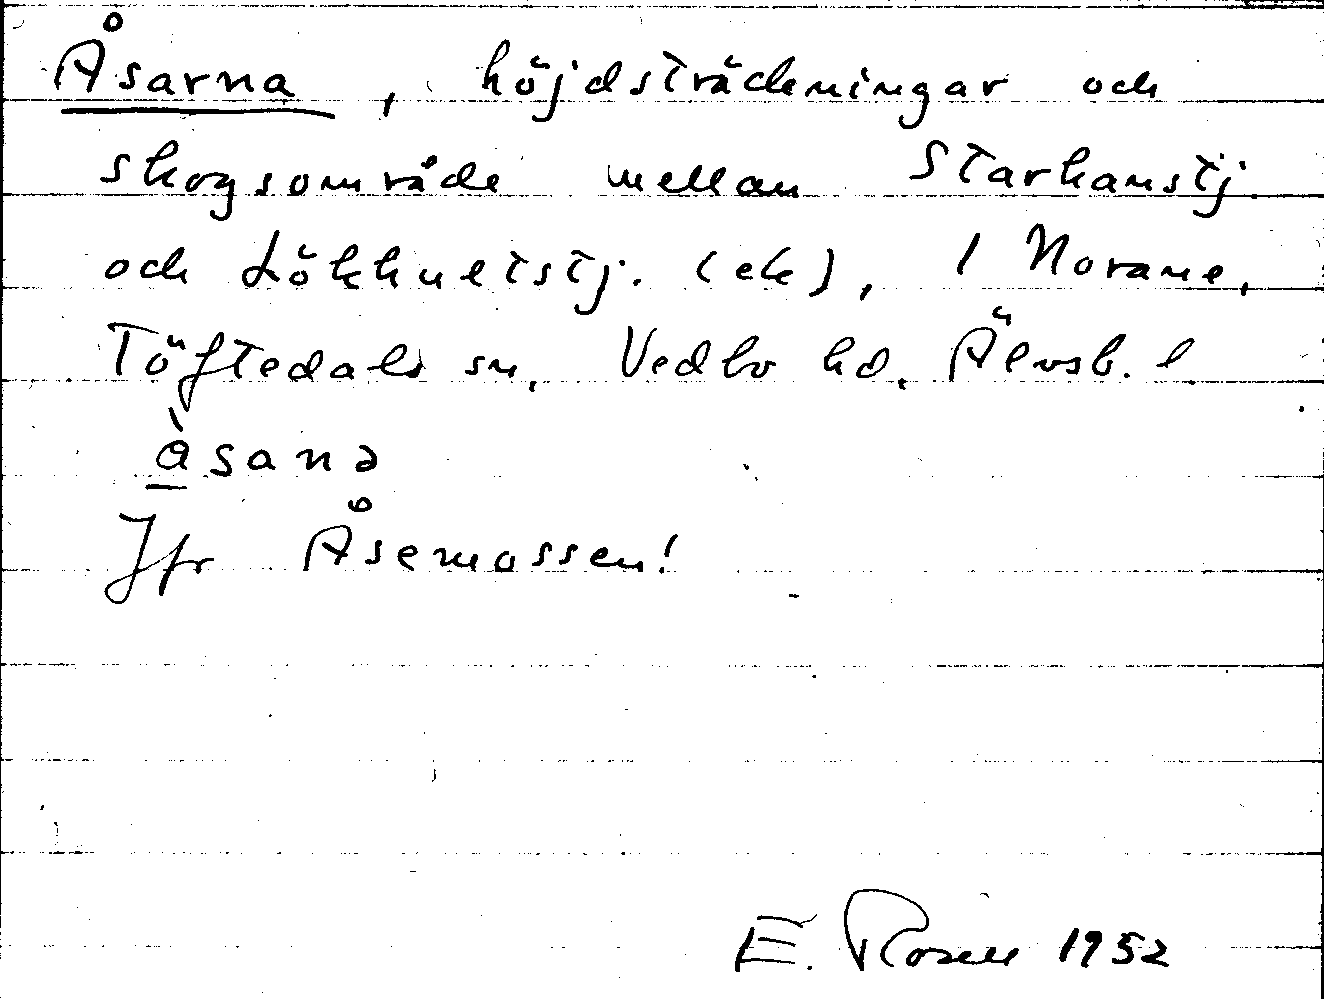 Åsarna, höjdsträckningar och
skogsområde mellan Starkanstj.
och Lökhultstj. (ek), 1 Norane,
Töftedals sn, Vedbo hd. Älvsb. l
àsanə
Jfr Åsemossen!
E. Rosell 1952